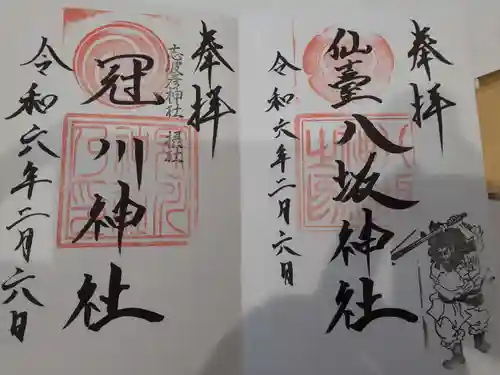 奉拝
仙臺八坂神社
令和六年二月六日
奉拝
志波彦神社 摂社
冠川神社
令和六年二月六日